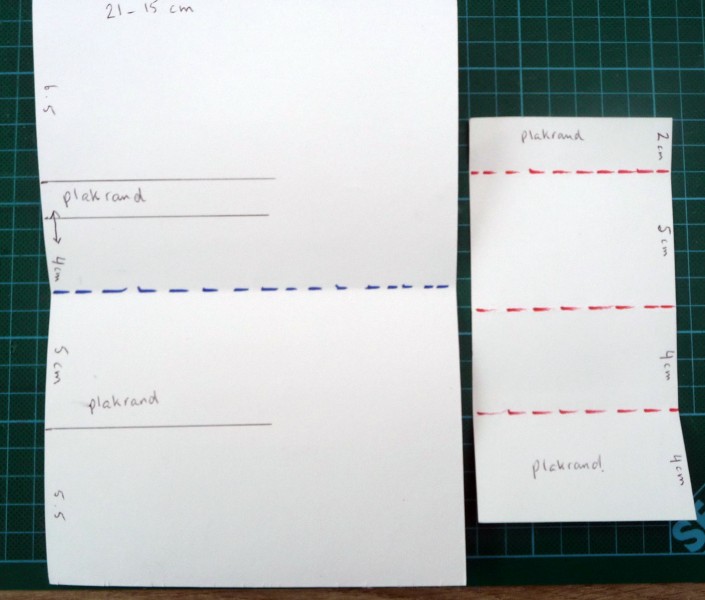 21-15 cm
6.5
plakrand
4cm
5cm
plakrand
5.5
plakrand
2cm
5cm
4cm
plakrand.
4cm